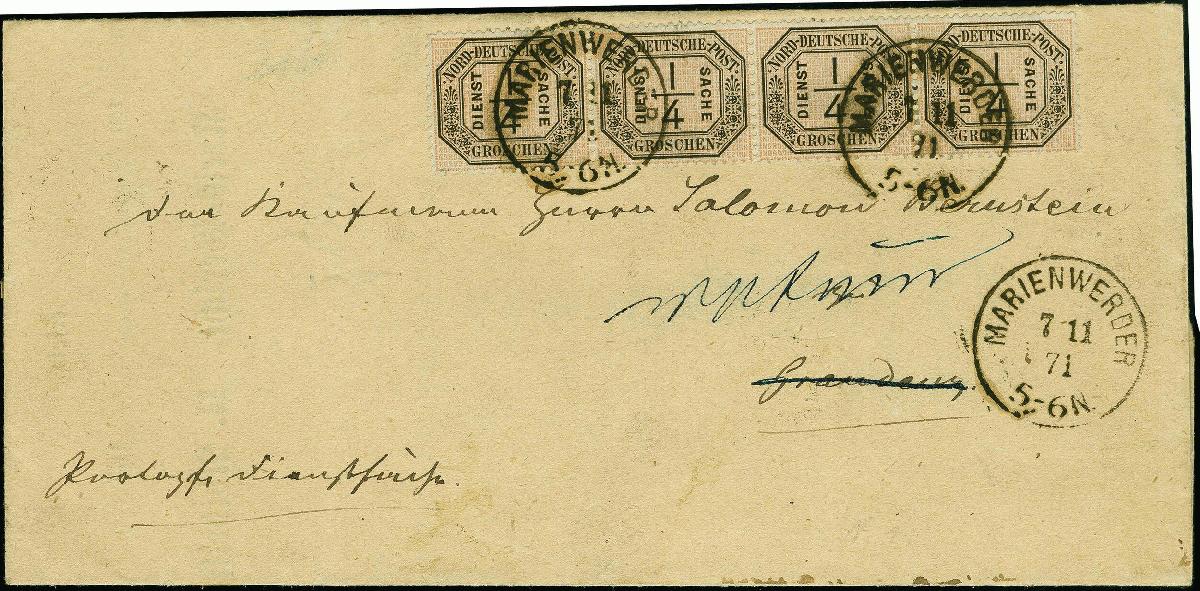 NORD-DEUTSCHE-POST. DIENST SACHE 1/4 GROSCHEN
NORD-DEUTSCHE-POST. DIENST SACHE 1/4 GROSCHEN
NORD-DEUTSCHE-POST. DIENST SACHE 1/4 GROSCHEN
NORD-DEUTSCHE-POST. DIENST SACHE 1/4 GROSCHEN
MARIENWERDER 7 11 5-6N.
MARIENWERDER 7 11 71 5-6N.
Herrn Salomon Bernstein
MARIENWERDER
7 11
71
5-6N.
Graudenz
Dienstsache